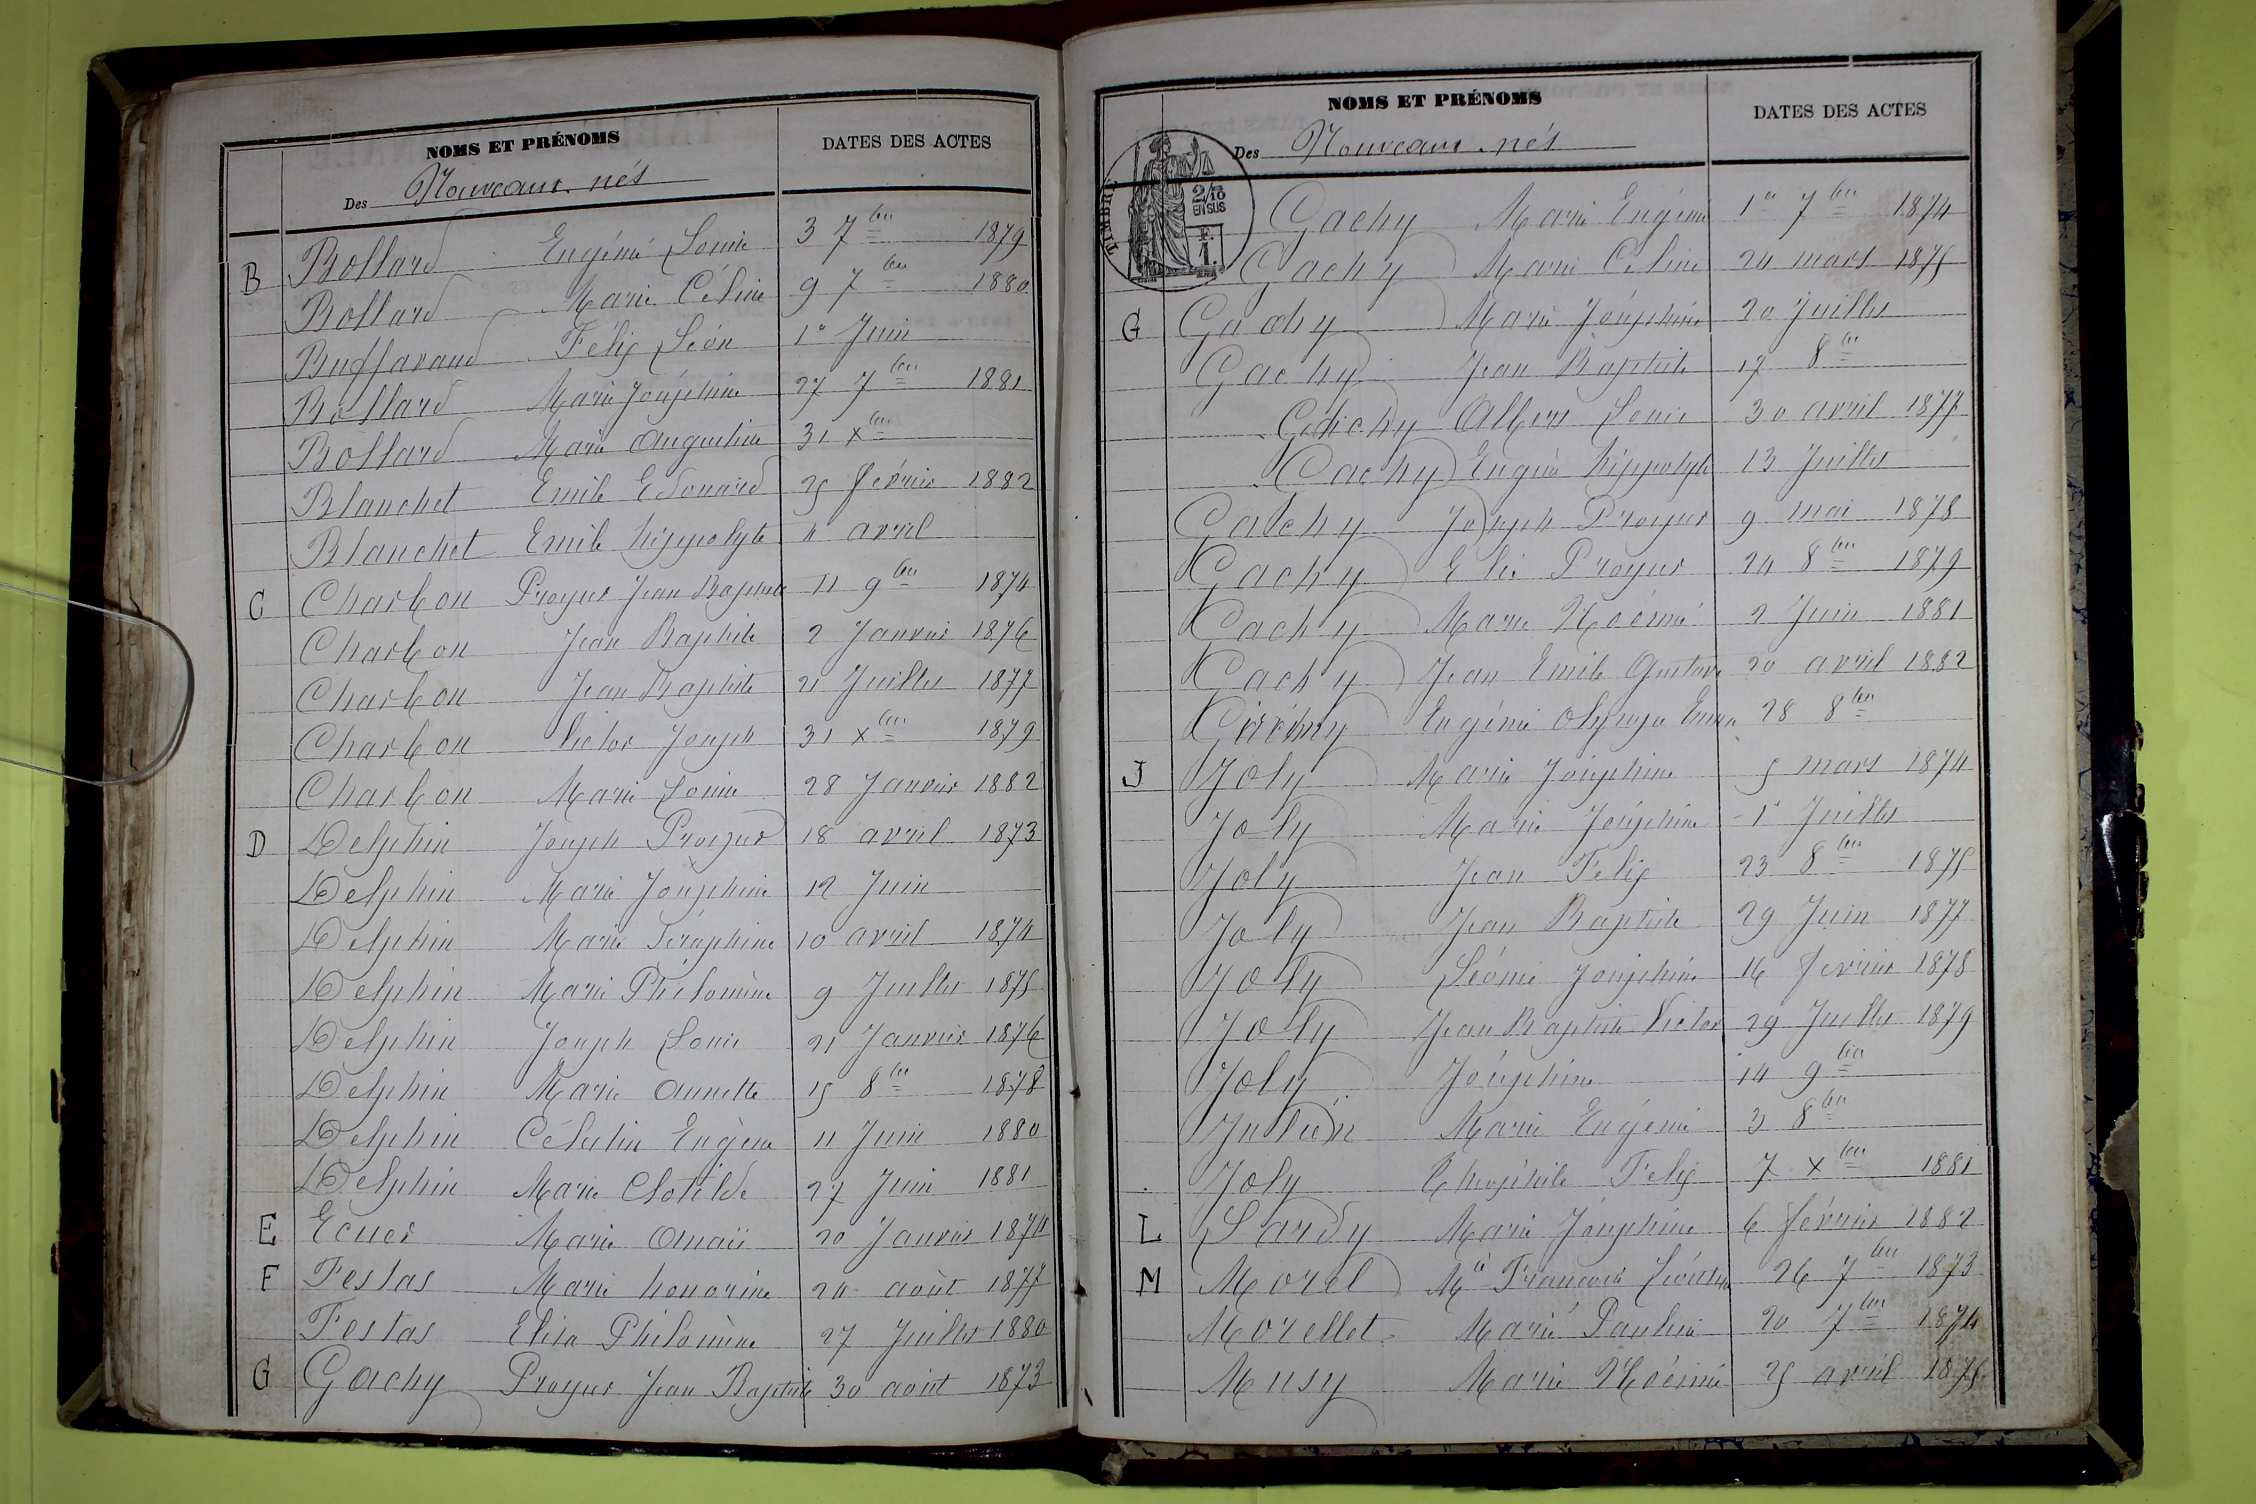 NOMS ET PRÉNOMS
DATES DES ACTES
Des Nouveaux-nés
B Bollard Eugénie Louise 3 7bre 1879
Bollard Marie Céline 9 7bre 1880
Buffavand Félix Léon 1er Juin
Bollard Marie Joséphine 27 7bre 1881
Bollard Marie Augustine 31 xbre
Blanchet Emile Edouard 25 février 1882
Blanchet Emile hippolyte 4 avril
C Charbon Prosper Jean Baptiste 11 9bre 1874
Charbon Jean Baptiste 2 Janvier 1876
Charbon Jean Baptiste 21 Juillet 1877
Charbon Victor Joseph 31 xbre 1879
Charbon Marie Louise 28 Janvier 1882
D Delphin Joseph Prosper 18 avril 1873
Delphin Marie Joséphine 12 Juin
Delphin Marie Séraphine 10 avril 1874
Delphin Marie Philomène 9 Juillet 1875
Delphin Joseph Louis 21 Janvier 1876
Delphin Marie Annette 15 8bre 1878
Delphin Célestin Eugène 11 Juin 1880
Delphin Marie Clotilde 27 Juin 1881
E Ecuer Marie Anaïs 20 Janvier 1874
F Festas Marie honorine 24 août 1877
Festas Elisa Philomène 27 Juillet 1880
G Gachy Prosper Jean Baptiste 30 août 1873
NOMS ET PRÉNOMS
DATES DES ACTES
Des Nouveaux-nés
TIMBRE
2/10
EN SUS
F.
1.
Gachy Marie Eugénie 1er 7bre 1874
Gachy Marie Céline 24 mars 1875
G Gachy Marie Joséphine 20 Juillet
Gachy Jean Baptiste 17 8bre
Gachy Albert Louis 30 avril 1877
Gachy Eugène hippolyte 13 Juillet
Gachy Joseph Prosper 9 mai 1878
Gachy Elie Prosper 24 8bre 1879
Gachy Marie Noémie 2 Juin 1881
Gachy Jean Emile Gustave 20 avril 1882
Eugénie Olympe Emma 28 8bre
J Joly Marie Joséphine 5 mars 1874
Joly Marie Joséphine 1er Juillet
Joly Jean Félix 23 8bre 1875
Joly Jean Baptiste 29 Juin 1877
Joly Léonie Joséphine 16 fevrier 1878
Joly Jean Baptiste Victor 29 Juillet 1879
Joly Joséphine 14 9bre
Julien Marie Eugénie 3 8bre
Joly Théophile Felix 7 xbre 1881
L Sardy Marie Joséphine 6 février 1882
M Morel Mie 26 7bre 1873
Morellet Marie Pauline 20 7bre 1874
Musy Marie Noémie 25 avril 1875